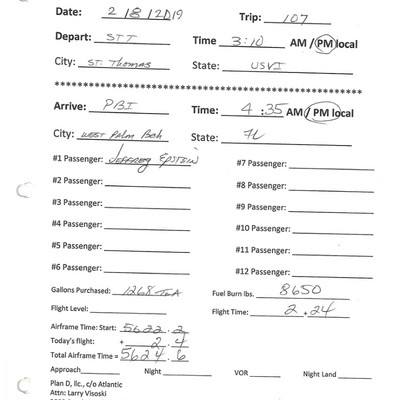 Date: 2/8/2019 Trip: 107
Depart: STT Time 3:10 AM / PM local
City: ST. Thomas State: USVI
************************************************
Arrive: PBI Time: 4:35 AM / PM local
City: WEST Palm Bch State: FL
#1 Passenger: Jeffrey Epstein #7 Passenger:
#2 Passenger: #8 Passenger:
#3 Passenger: #9 Passenger:
#4 Passenger: #10 Passenger:
#5 Passenger: #11 Passenger:
#6 Passenger: #12 Passenger:
Gallons Purchased: 1268 Fuel Burn lbs. 8650
Flight Level: Flight Time: 2.24
Airframe Time: Start: 5622.2
Today's flight: + 2.4
Total Airframe Time = 5624.6
Approach Night VOR Night Land
Plan D, llc., c/o Atlantic
Attn: Larry Visoski